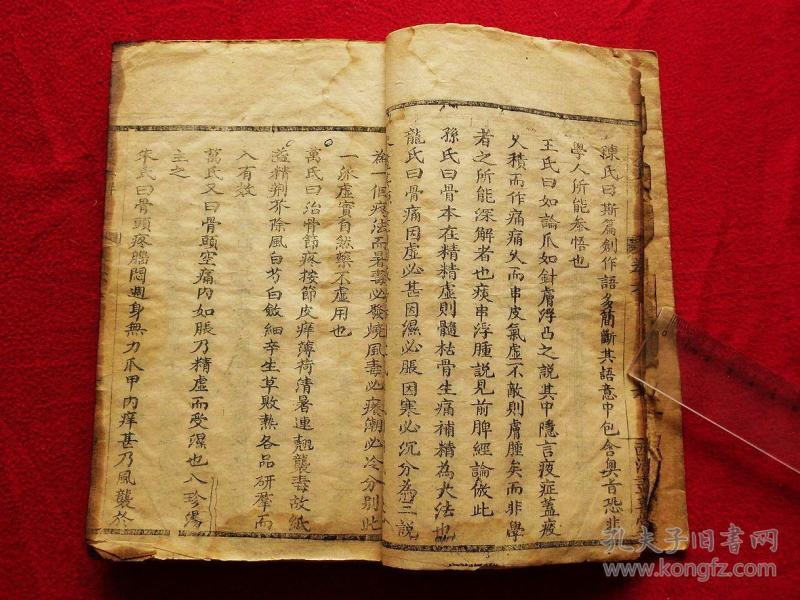 陳氏曰斯篇劍作語多簡斷其語意中包含奥旨恐非
學人所能參悟也
王氏曰如論爪如針膚浮凸之說其中隱言疲症蓋疲
乆積而作痛痛乆而串皮氣虛不敵則膚腫矣而非學
者之所能深解者也痰串浮腫說見前脾經論倣此
孫氏曰骨本在精精虛則髓枯骨生痛補精為大法也
龍氏曰骨痛因虛必甚因濕必脹因寒必沉分為三說
為一個疼法而暑毒必發燒風毒必瘝潮必冷分別此
一派虛實自然藥不虛用也
萬氏曰治骨節疼按節皮痒薄荷清暑連翹襲毒故紙
益精荆芥除風白芍白斂細辛生草敗热各品研摩而
入有效
萬氏又曰骨頭空痛內如脹乃精虛而受濕也八珍湯
主之
朱氏曰骨頭疼膯悶週身無力爪甲內痒甚乃風襲於
孔夫子旧書网
www.kongfz.com